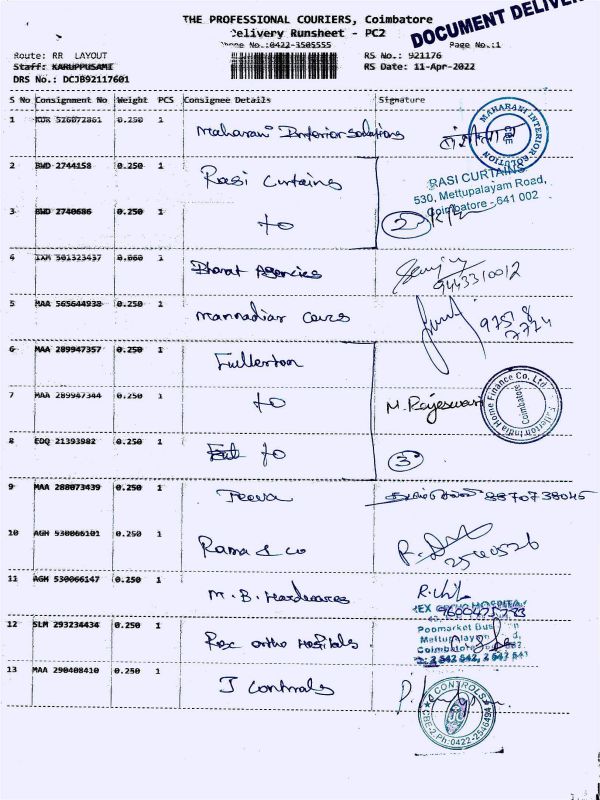 THE PROFESSIONAL COURIERS, Coimbatore
DOCUMENT DELIVER
Delivery Runsheet - PC2
Phone No.:0422-3505555
Page No.:1
Route: RR LAYOUT
RS No.: 921176
Staff: KARUPPUSAMI
RS Date: 11-Apr-2022
DRS No.: DCJB92117601
S No Consignment No Weight PCS Consignee Details Signature
1 KUR 526872861 0.250 1 Maharani Interior Solutions
MAHARANI INTERIOR
2 BWD 2744158 0.250 1 Rasi Curtains
RASI CURTAINS
530, Mettupalayam Road,
Coimbatore - 641 002
3 BWD 2740686 0.250 1 to 2
4 IXM 501323437 0.060 1 Bharat Agencies 9443310012
5 MAA 565644938 0.250 1 mannadiar Cars 9751 8
7724
6 MAA 289947357 0.250 1 Fullerton
7 MAA 289947344 0.250 1 to M. Rajeswari
Fullerton India Home Finance Co. Ltd
Coimbatore
8 EDQ 21393982 0.250 1 to 3
9 MAA 288073439 0.250 1 Jeeva 8870738045
10 AGM 530066101 0.250 1 Rama & co
11 AGM 530066147 0.250 1 M. B. Hardwares
12 SLM 293234434 0.250 1 Rex ortho Hospitals.
Poomarket Bus
Mettupalayam
Coimbatore
2 542 542, 2 543 543
13 MAA 290408410 0.250 1 J Controls
CONTROLS
CBE-2. Ph:0422-2546494